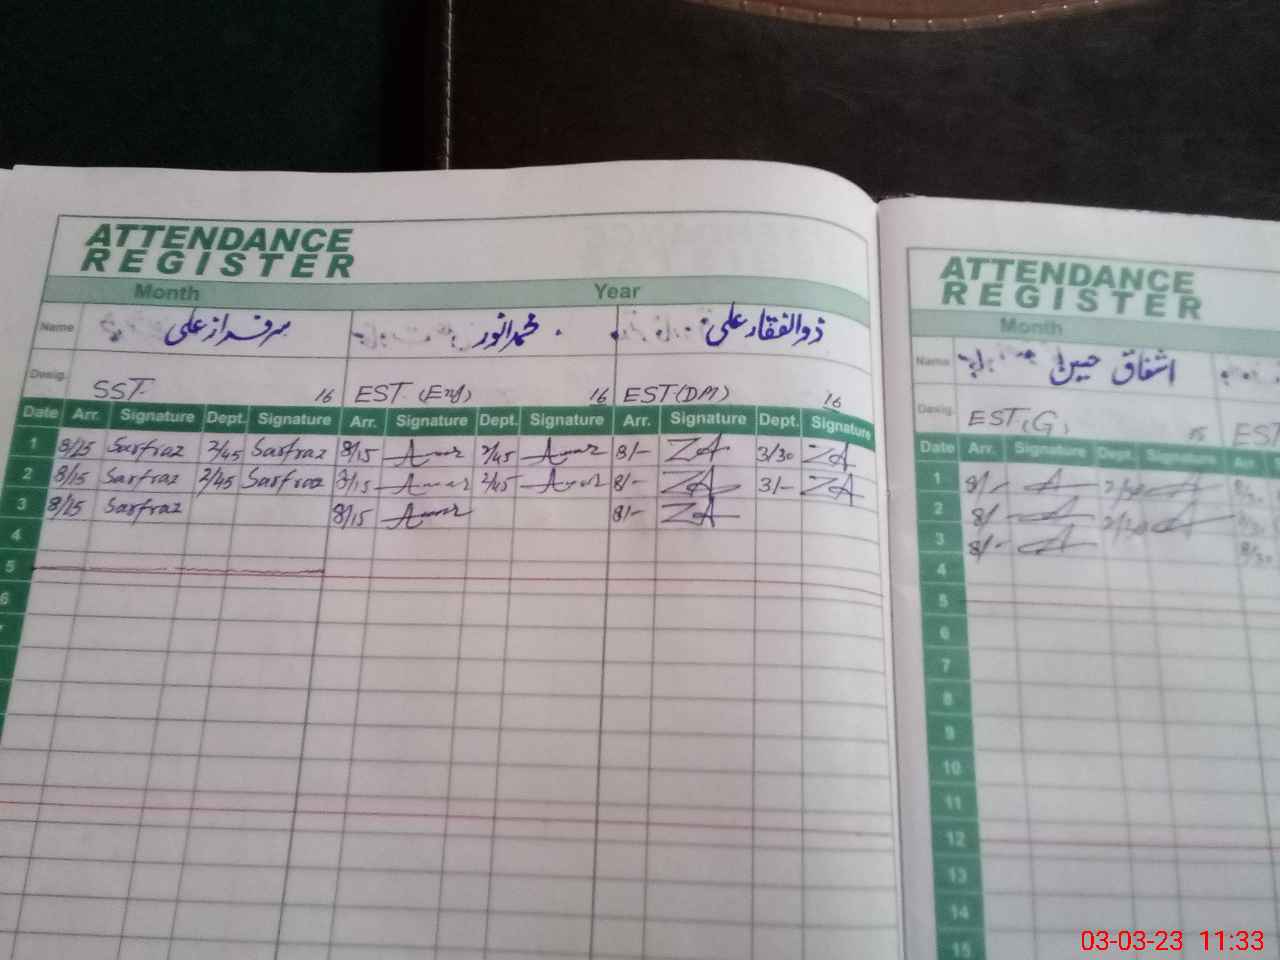 ATTENDANCE
REGISTER
Month Year
Name سرفراز علی محمد انور ذوالفقار علی
Desig. SST 16 EST (Eng) 16 EST (DM) 16
Date Arr. Signature Dept. Signature Arr. Signature Dept. Signature Arr. Signature Dept. Signature
1 8/15 Sarfraz 2/45 Sarfraz 8/15 2/45 8/- ZA 3/30 ZA
2 8/15 Sarfraz 2/45 Sarfraz 8/15 2/45 8/- ZA 3/- ZA
3 8/15 Sarfraz 8/15 8/- ZA
4
5
6
ATTENDANCE
REGISTER
Month
Name اشفاق حسین
Desig. EST (G) EST
Date Arr. Signature Dept. Signature Arr.
1 8/-
2 8/-
3 8/- 8/30
4
5
6
7
8
9
10
11
12
13
14
15
03-03-23 11:33